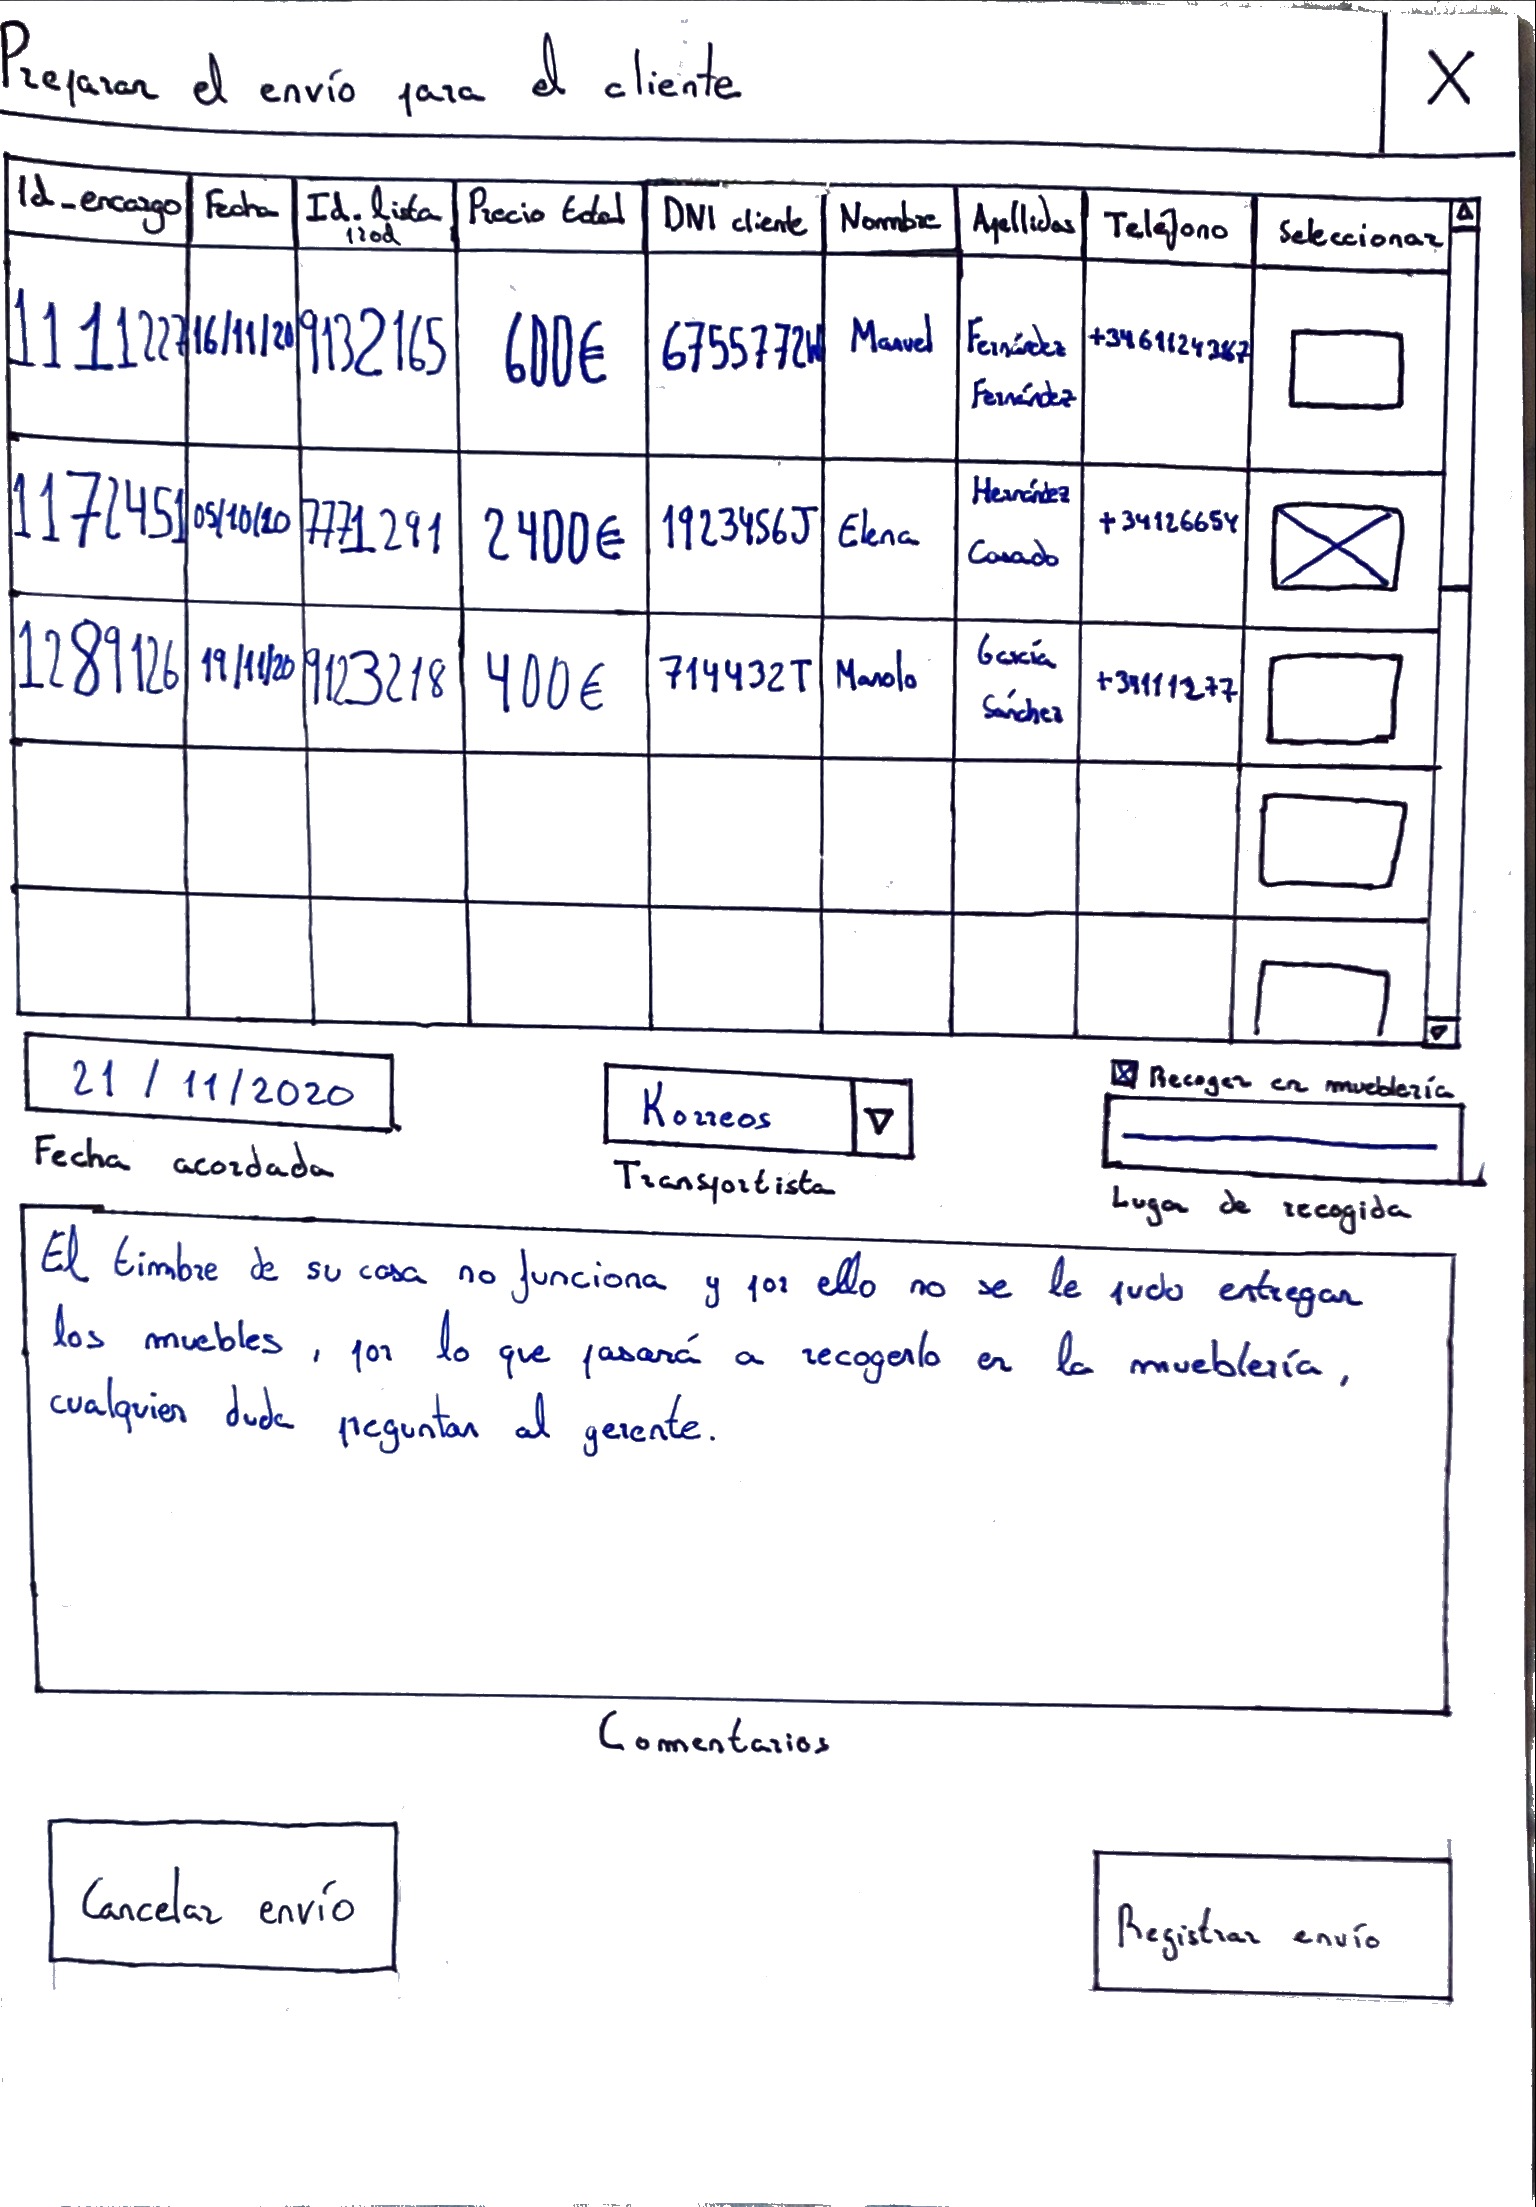 Preparar el envío para el cliente X
Id_encargo Fecha Id. lista prod Precio total DNI cliente Nombre Apellidos Teléfono Seleccionar
1111227 16/11/20 9132165 600€ 6755772W Manuel Fernández Fernández
1172451 05/10/20 7771291 2400€ 1923456J Elena Hernández Casado +34126654
1289126 19/11/20 9123218 400€ 714432T Manolo García Sánchez +34111277
21/11/2020
Fecha acordada
Korreos
Transportista
Recoger en mueblería
Lugar de recogida
El timbre de su casa no funciona y por ello no se le pudo entregar
los muebles, por lo que pasará a recogerlo en la mueblería,
cualquier duda preguntar al gerente.
Comentarios
Cancelar envío
Registrar envío